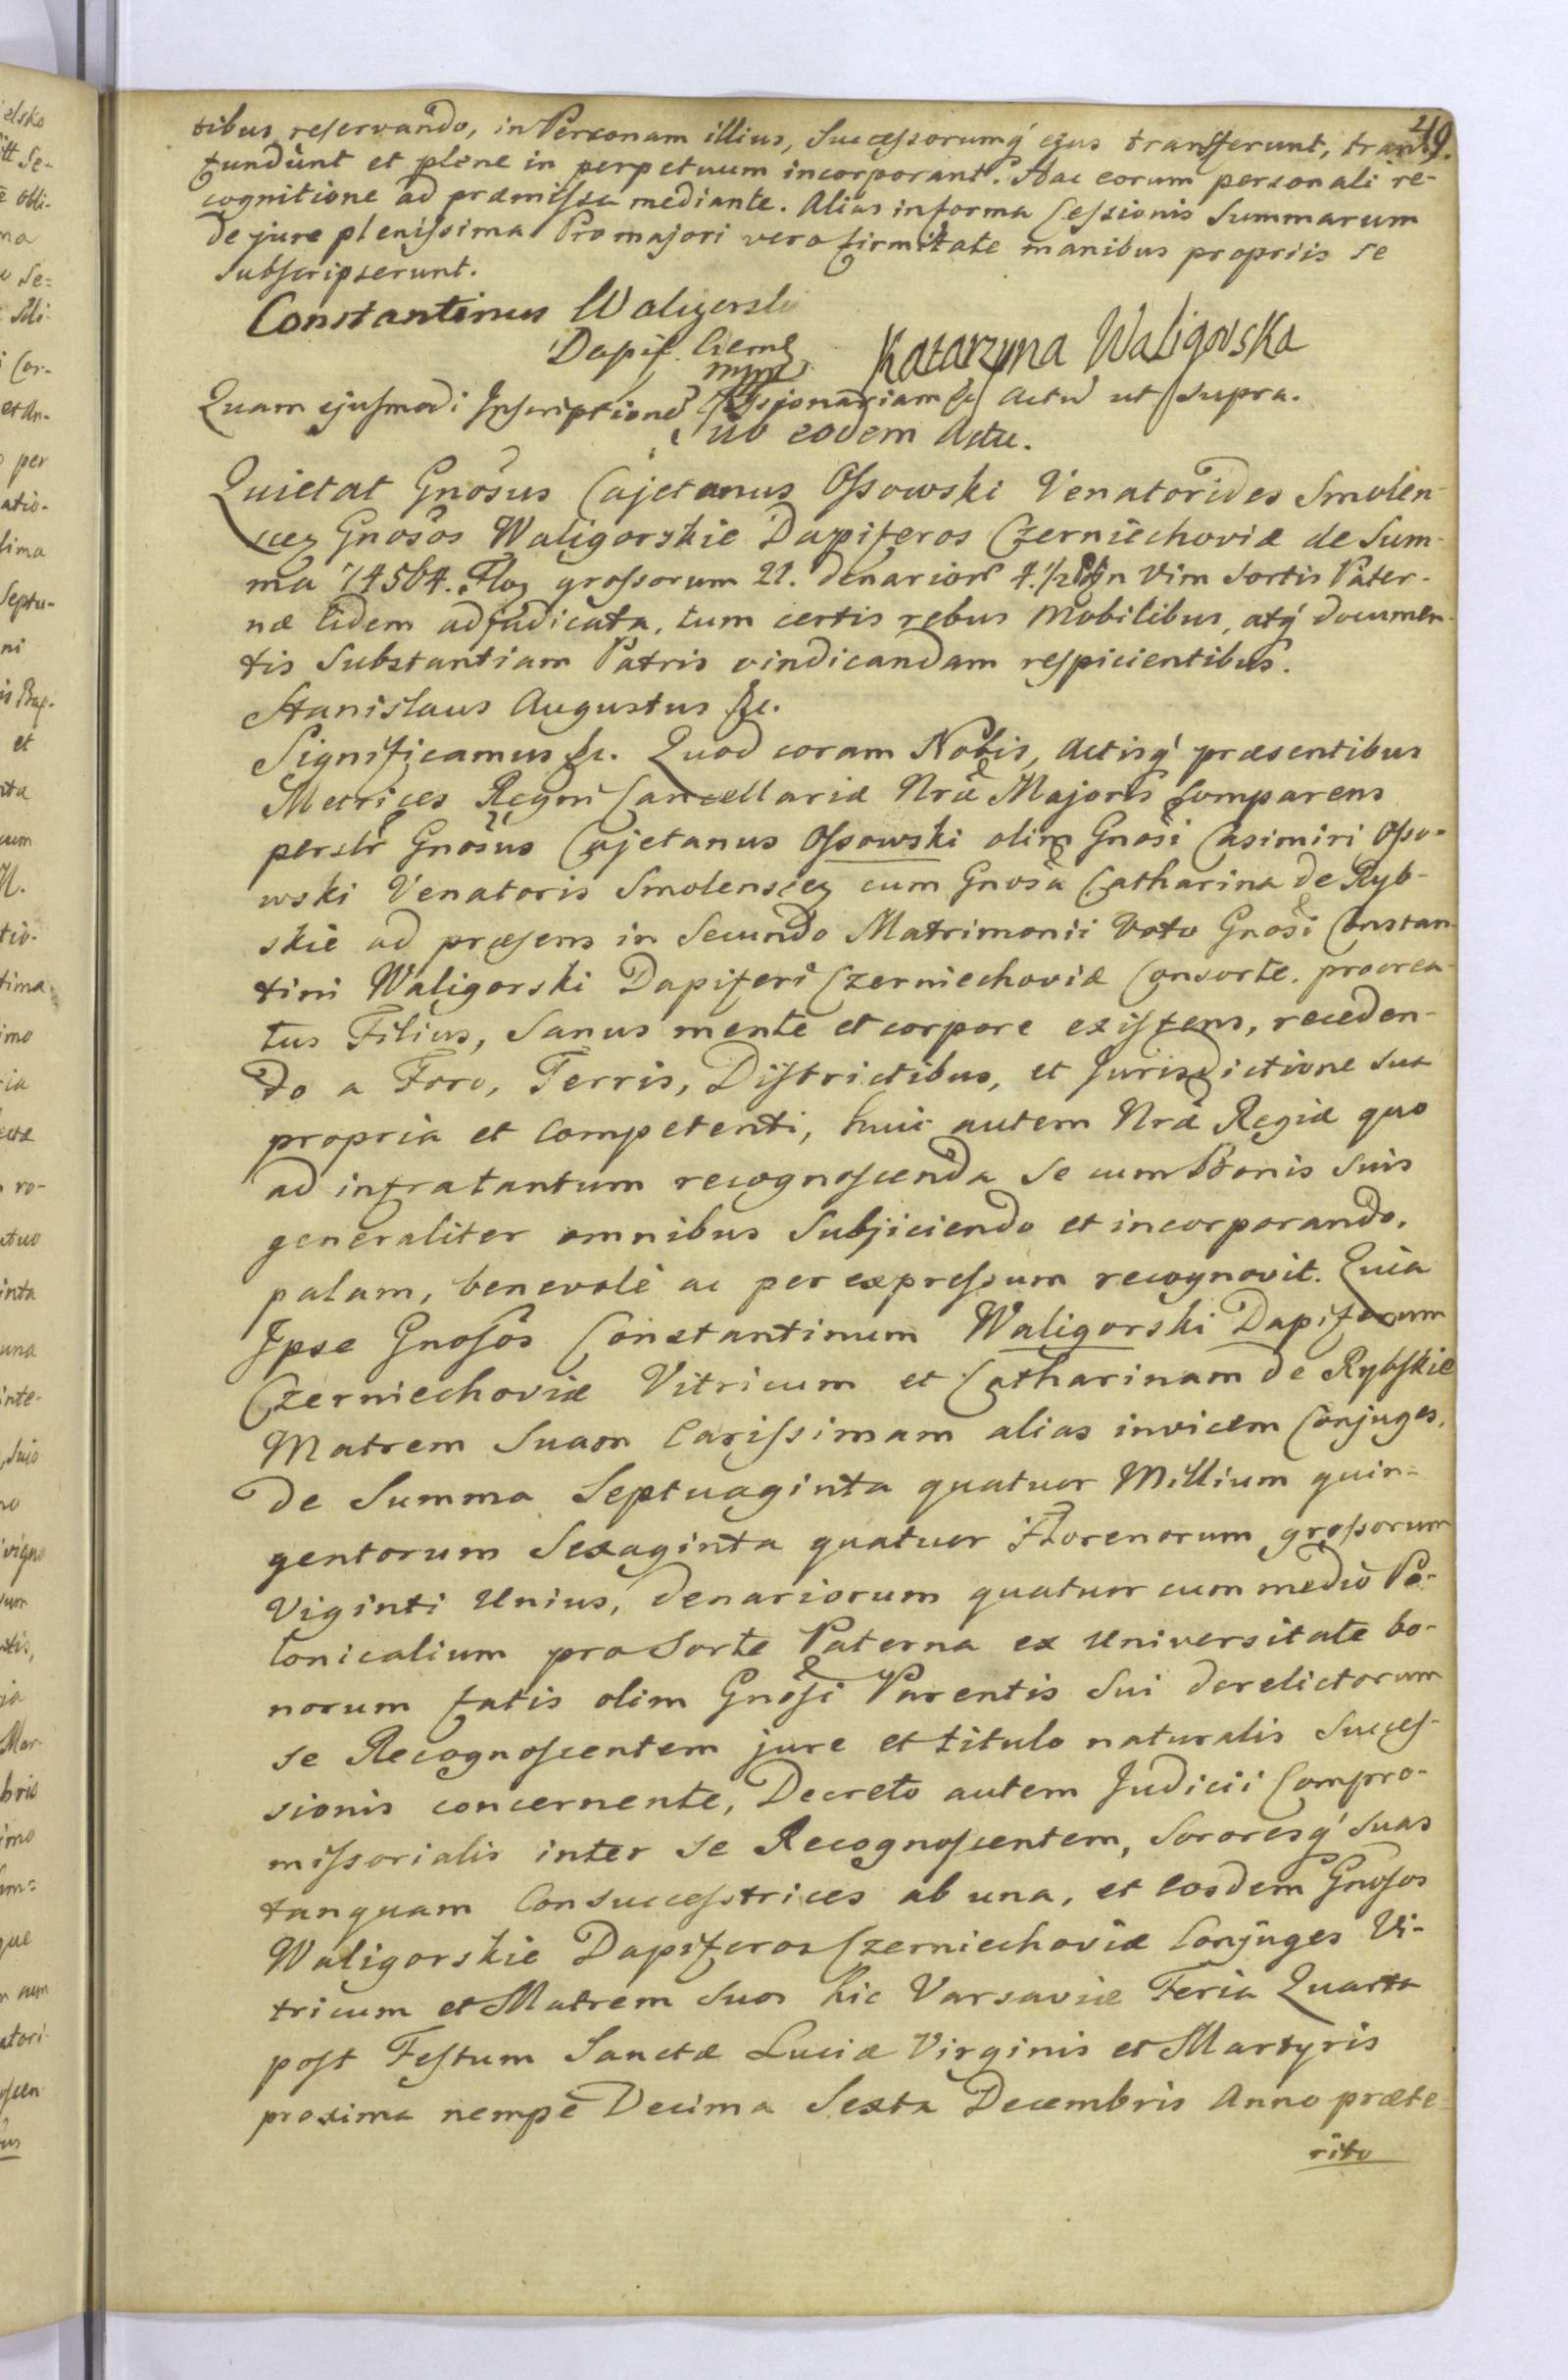 49.
tibus reservando, in Personam illius, Successorumq́ ejus transferunt, trans-
fundunt et plene in perpetuum incorporant. Hac eorum personali re-
cognitione ad præmissa mediante. Alias in forma Cessionis Summarum
de jure plenissima Pro majori vero firmitate manibus propriis se
subscripserunt.
Constantinus Waligorski
Dapif. Czerne
mpr
Katarzyna Waligorska
Quam ejusmodi Inscriptione Cessionariam &c Actu ut supra.
Sub eodem Actu.
Quietat Gnosus Cajetanus Ossowski Venatorides Smolen-
scen Gnosos Waligorskie Dapiferos Czerniechoviæ de Sum-
ma 74564. Flor grossorum 21. denarior 4.1/2 in vim Sortis Pater-
næ Eidem adjudicata, tum certis rebus Mobilibus, atq́ documen-
tis Substantiam Patris vindicandam respicientibus.
Stanislaus Augustus &c.
Significamus &c. Quod coram Nobis, Actisq́ præsentibus
Metrices Regni Cancellariæ Nræ Majoris Comparens
persltr Gnosus Cajetanus Ossowski olim Gnosi Casimiri Osso-
wski Venatoris Smolenscen cum Gnosa Catharina de Ryb-
skie ad præsens in Secundo Matrimonii Voto Gnosi Constan-
tini Waligorski Dapiferi Czerniechoviæ Consorte. procrea-
tus Filius, Sanus mente et corpore existens, receden-
do a Foro, Terris, Districtibus, et Jurisdictione sua
propria et Competenti, huic autem Nræ Regiæ quo
ad infratantum recognoscenda se cum Bonis suis
generaliter omnibus Subjiciendo et incorporando.
palam, benevolè ac per expressum recognovit. Quia
Ipse Gnosos Constantinum Waligorski Dapiferum
Czerniechoviæ Vitricum et Catharinam de Rybskie
Matrem Suam Carissimam alias invicem Conjuges.
de Summa Septuaginta quatuor Millium quin-
gentorum Sexaginta quatuor Florenorum grossorum
Viginti Unius, denariorum quatuor cum medio Po-
lonicalium pro Sorte Paterna ex Universitate bo-
norum fatis olim Gnosi Parentis Sui derelictorum
se Recognoscentem jure et titulo naturalis Succes-
sionis concernente, Decreto autem Judicii Compro-
missorialis inter se Recognoscentem, Sororesq́ suas
tanquam Consuccesstrices ab una, et Eosdem Gnosos
Waligorskie Dapiferos Czerniechoviæ Conjuges Vi-
tricum et Matrem suos hic Varsaviæ Feria Quarta
post Festum Sanctæ Luciæ Virginis et Martyris
proxima nempè Decima Sexta Decembris Anno præte-
rito